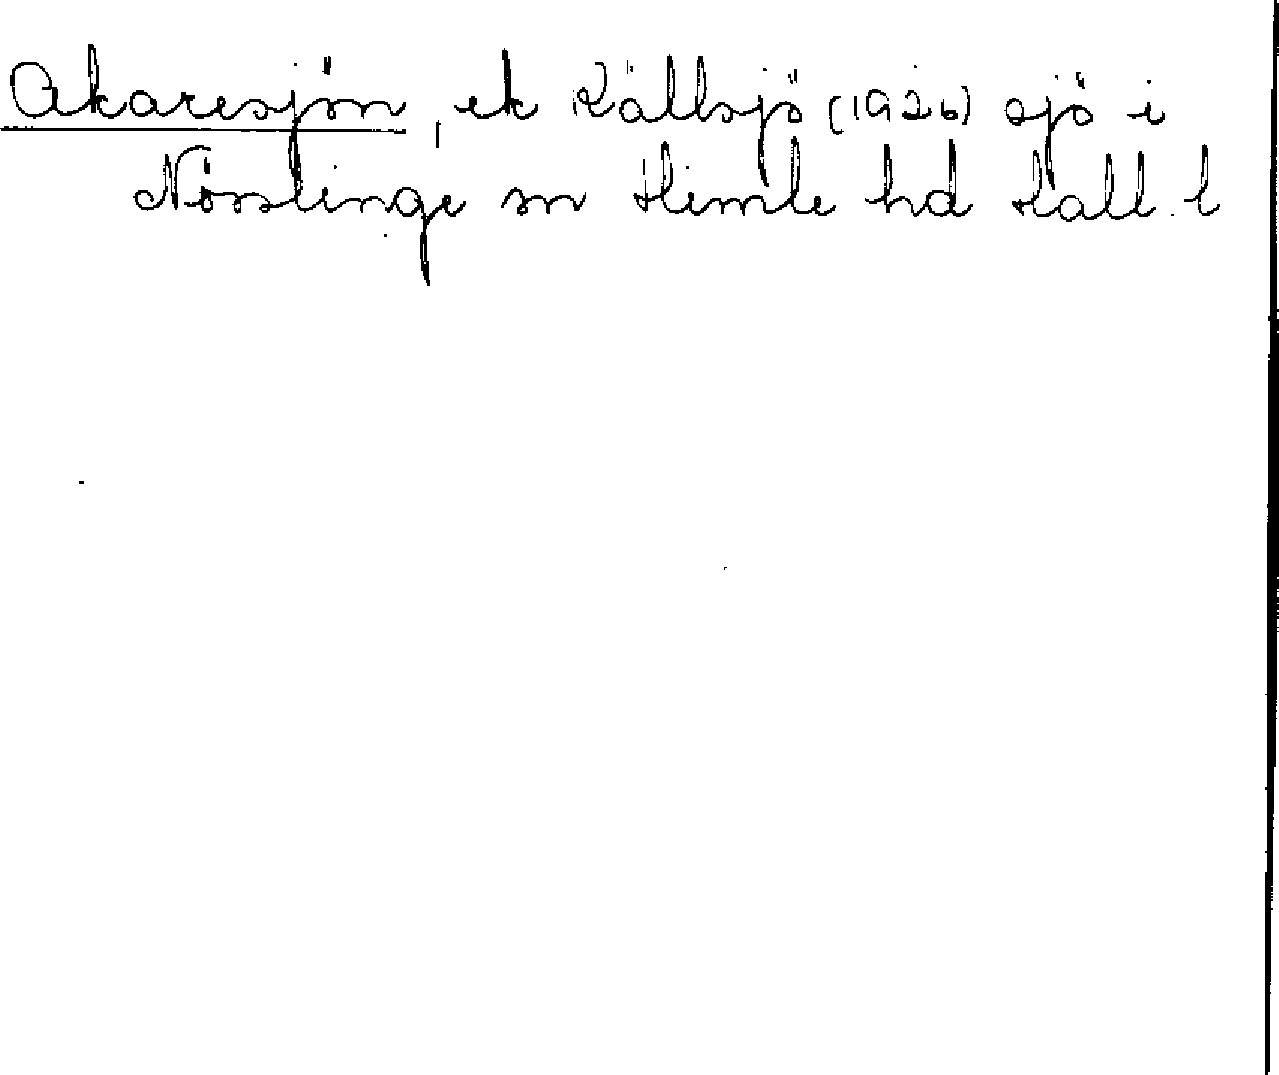 Akaresjön, ek Källsjö (1926) sjö i
Nösslinge sn Himle hd Hall. l